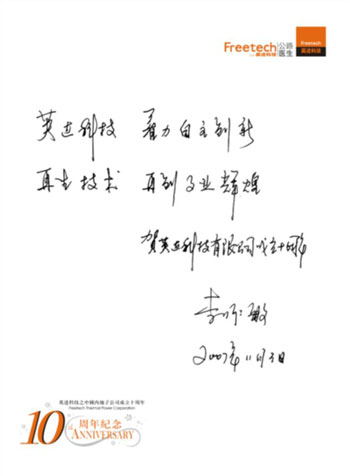 Freetech 公路医生 Freetech
英达科技 英达科技
英达科技 着力自主创新
再生技术 再创事业辉煌
贺英达科技有限公司成立十周年
李
2007年11月3日
英达科技之中国内地子公司成立十周年
Freetech Thermal Power Corporation
10th 周年纪念
ANNIVERSARY